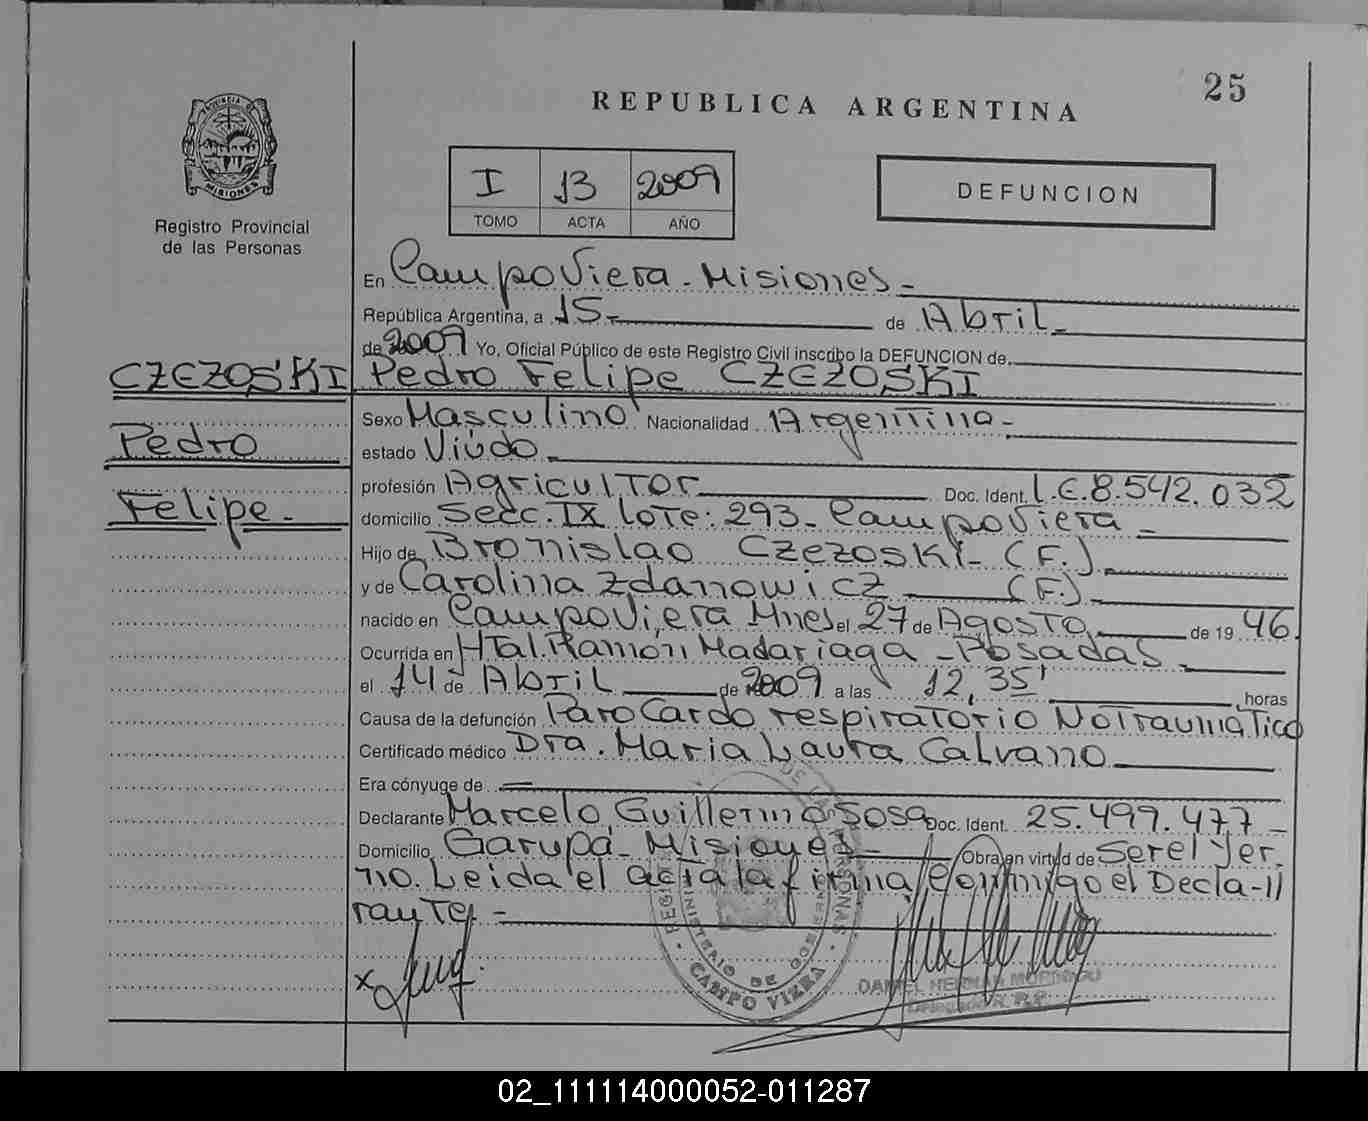 25
REPUBLICA ARGENTINA
PROVINCIA DE
MISIONES
Registro Provincial
de las Personas
I 13 2009
TOMO ACTA AÑO
DEFUNCION
En Campo Viera - Misiones -
República Argentina, a 15 - de Abril -
de 2009 Yo, Oficial Público de este Registro Civil inscribo la DEFUNCION de
CZEZOSKI Pedro Felipe CZEZOSKI
Sexo Masculino Nacionalidad Argentina -
Pedro
estado Viúdo -
profesión Agricultor Doc. Ident. L.E. 8.542.032
Felipe -
domicilio Secc. IX Lote: 293 - Campo Viera -
Hijo de Bronislao Czezoski - (F.)
y de Carolina Zdanowicz (F.)
nacido en Campo Viera Mnes el 27 de Agosto de 19 46.
Ocurrida en Htal. Ramón Madariaga - Posadas -
el 14 de Abril de 2009 a las 12,35' horas
Causa de la defunción Paro Cardo respiratorio No Traumatico
Certificado médico Dra. Maria Laura Calvano
Era cónyuge de
Declarante Marcelo Guillermo Sosa Doc. Ident. 25.499.477 -
Domicilio Garupá - Misiones - Obra en virtud de Ser el Yer-
no. Leida el acta la firma conmigo el Decla-//
rante. -
x
MINISTERIO DE GOBIERNO
CAMPO VIERA
02_111114000052-011287